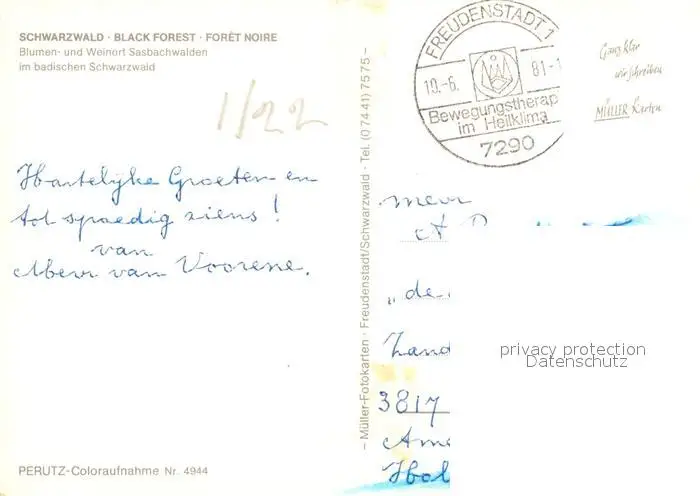 SCHWARZWALD · BLACK FOREST · FORÊT NOIRE
Blumen- und Weinort Sasbachwalden
im badischen Schwarzwald
1/22
Hartelyke Groeten en
tot spoedig ziens!
van
Mevr van Voorene.
PERUTZ-Coloraufnahme Nr. 4944
– Müller-Fotokarten · Freudenstadt/Schwarzwald · Tel. (0 74 41) 75 75 –
FREUDENSTADT 1
10.-6. 81-1
Bewegungstherap
im Heilklima
7290
Ganz klar
wir schreiben
MÜLLER Karten
mevr
A
„de
Zand
3817
Ame
Hol
privacy protection
Datenschutz